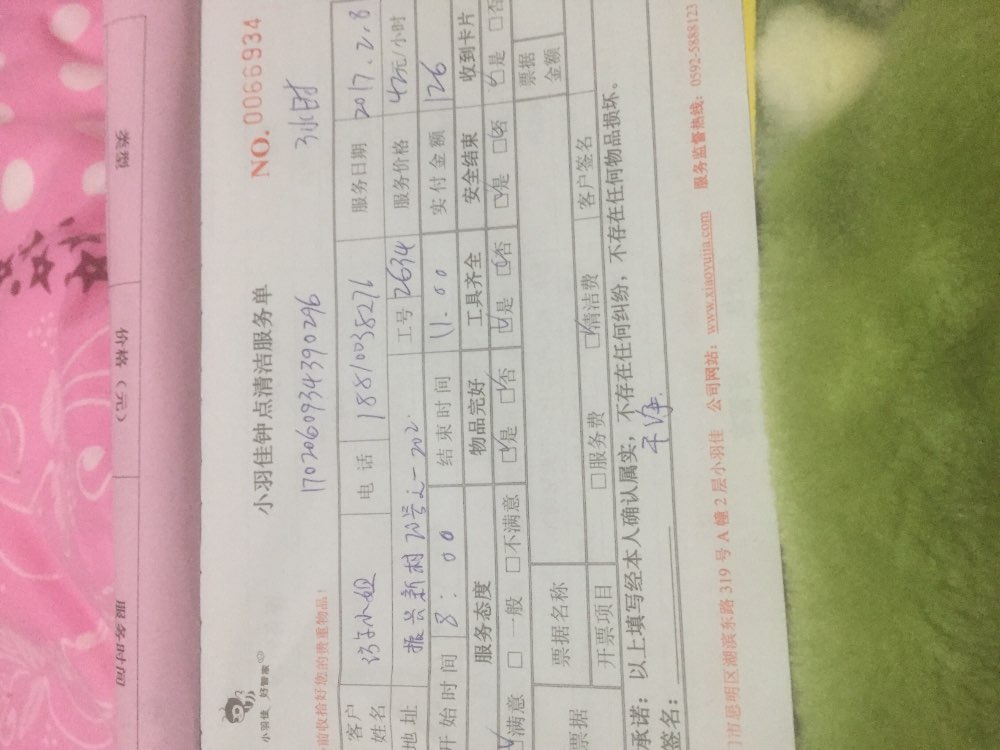 类型
价格（元）
服务时间
小羽佳 好管家
小羽佳钟点清洁服务单
NO. 0066934
前收拾好您的贵重物品！
1702060934390296
3小时
客户姓名 许小姐 电话 18810038276 服务日期 2017.2.8
地址 振兴新村20号之一202. 工号 2634 服务价格 42元/小时
开始时间 8:00 结束时间 11.00 实付金额 126
服务态度 物品完好 工具齐全 安全结束 收到卡片
☑满意 □一般 □不满意 ☑是 □否 ☑是 □否 ☑是 □否 ☑是 □否
票据 票据名称 票据金额
开票项目 □服务费 ☑清洁费 客户签名
承诺：以上填写经本人确认属实，不存在任何纠纷，不存在任何物品损坏。
签名： 干净.
门市思明区湖滨东路 319 号 A 幢 2 层小羽佳 公司网站：www.xiaoyujia.com 服务监督热线：0592-5888123